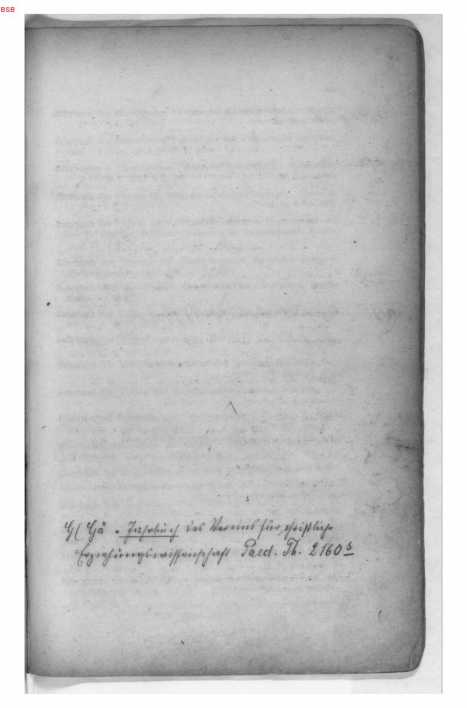 BSB
Jahrbuch des Vereins für christliche
Erziehungswissenschaft Paed. Th. 2160 s